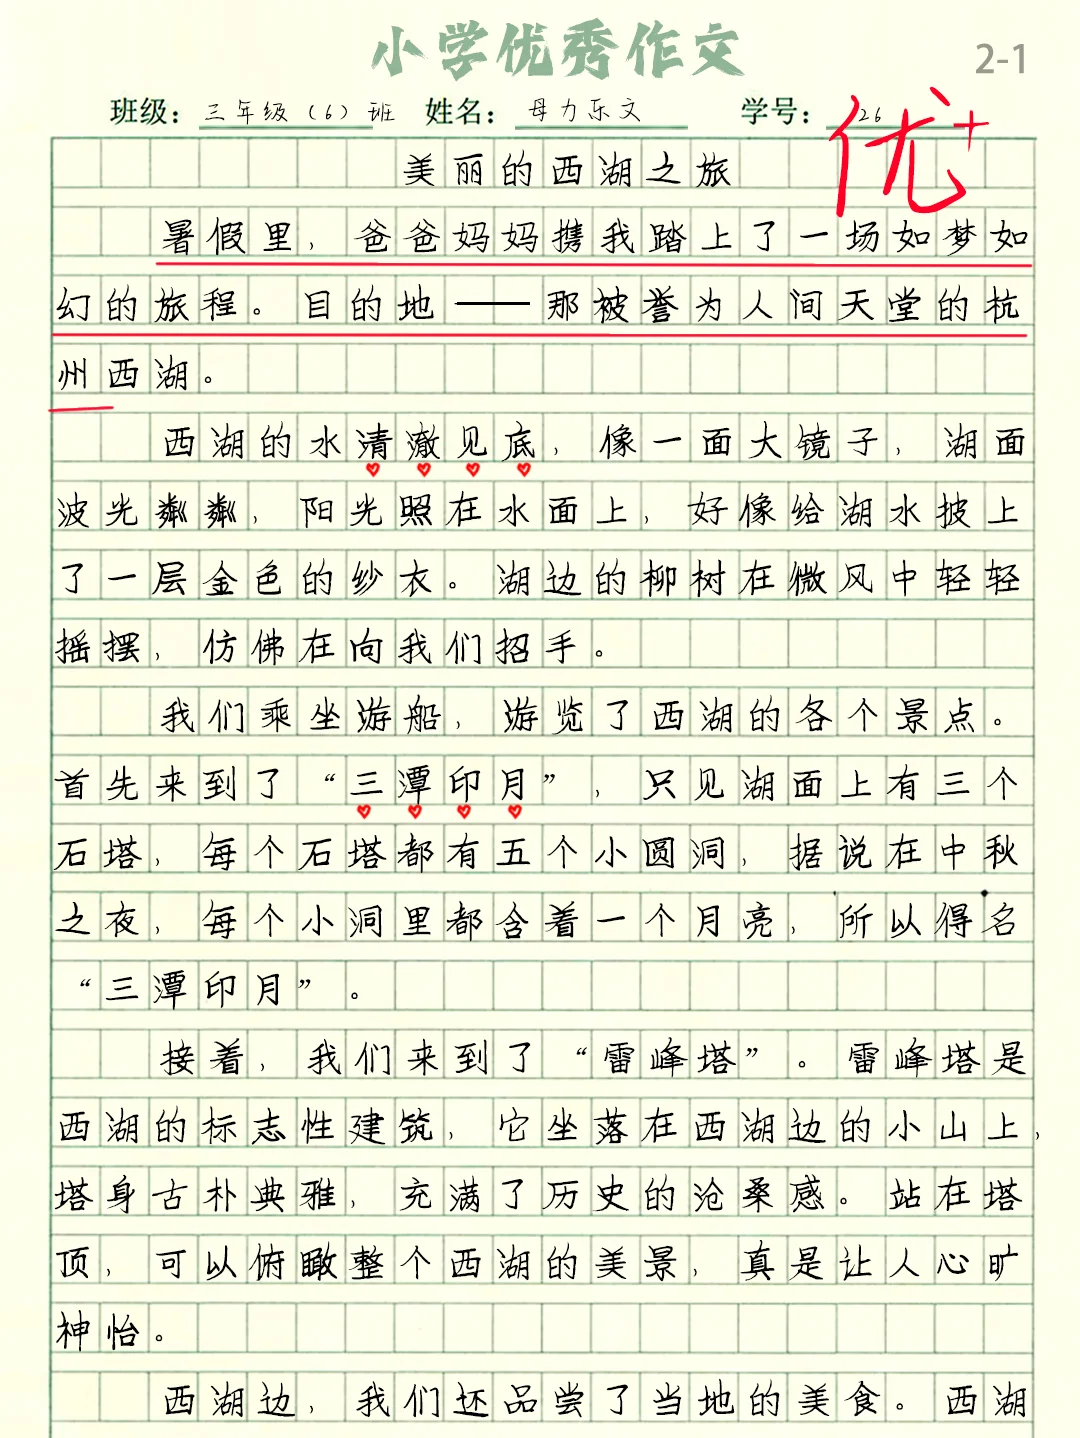 小学优秀作文
2-1
班级：三年级（6）班 姓名：母力乐文 学号：26
优+
美丽的西湖之旅
暑假里，爸爸妈妈携我踏上了一场如梦如
幻的旅程。目的地——那被誉为人间天堂的杭
州西湖。
西湖的水清澈见底，像一面大镜子，湖面
波光粼粼，阳光照在水面上，好像给湖水披上
了一层金色的纱衣。湖边的柳树在微风中轻轻
摇摆，仿佛在向我们招手。
我们乘坐游船，游览了西湖的各个景点。
首先来到了“三潭印月”，只见湖面上有三个
石塔，每个石塔都有五个小圆洞，据说在中秋
之夜，每个小洞里都含着一个月亮，所以得名
“三潭印月”。
接着，我们来到了“雷峰塔”。雷峰塔是
西湖的标志性建筑，它坐落在西湖边的小山上，
塔身古朴典雅，充满了历史的沧桑感。站在塔
顶，可以俯瞰整个西湖的美景，真是让人心旷
神怡。
西湖边，我们还品尝了当地的美食。西湖